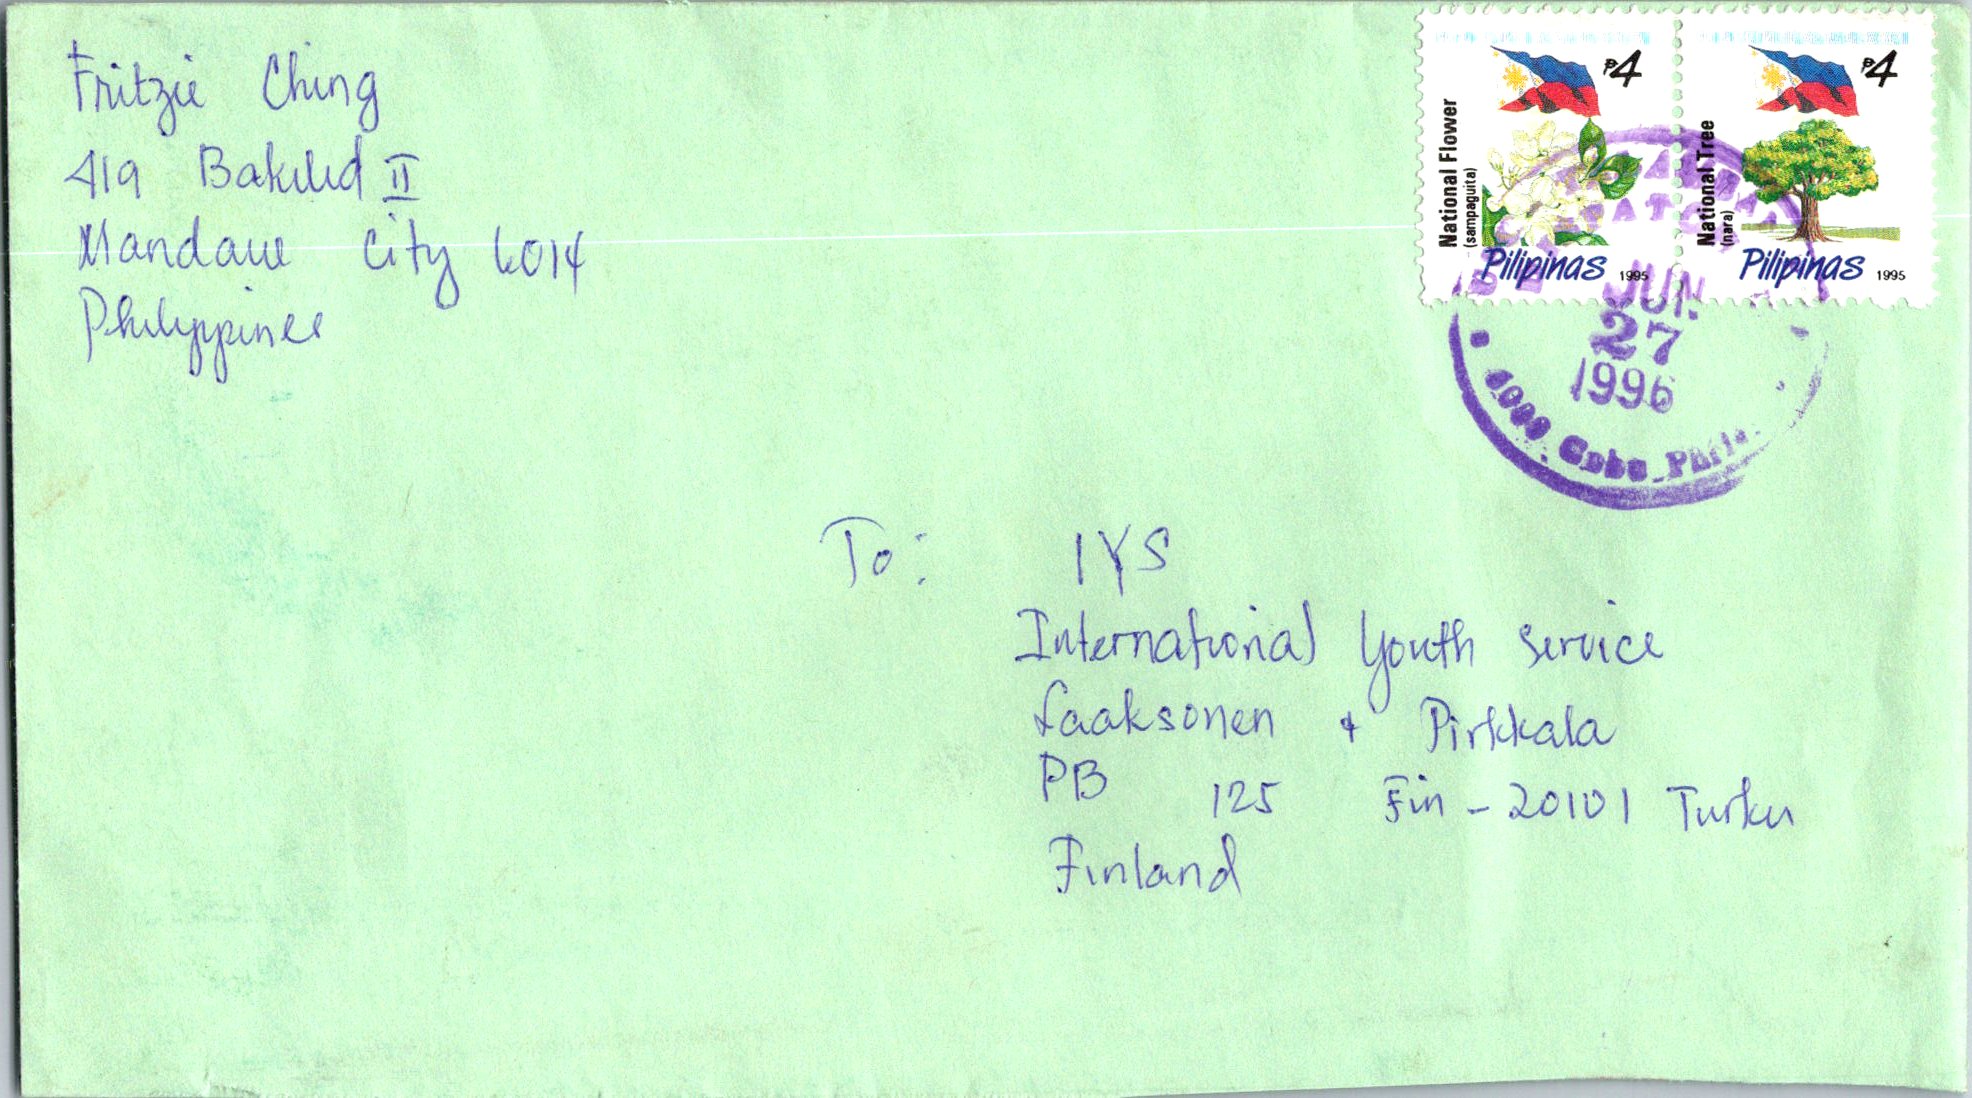 Fritzie Ching
419 Bakilid II
Mandaue City 6014
Philippines
₱4
National Flower
(sampaguita)
Pilipinas 1995
₱4
National Tree
(nara)
Pilipinas 1995
JUN
27
1996
6000 Cebu, Phils.
To: IYS
International Youth Service
Laaksonen & Pirkkala
PB 125 Fin - 20101 Turku
Finland